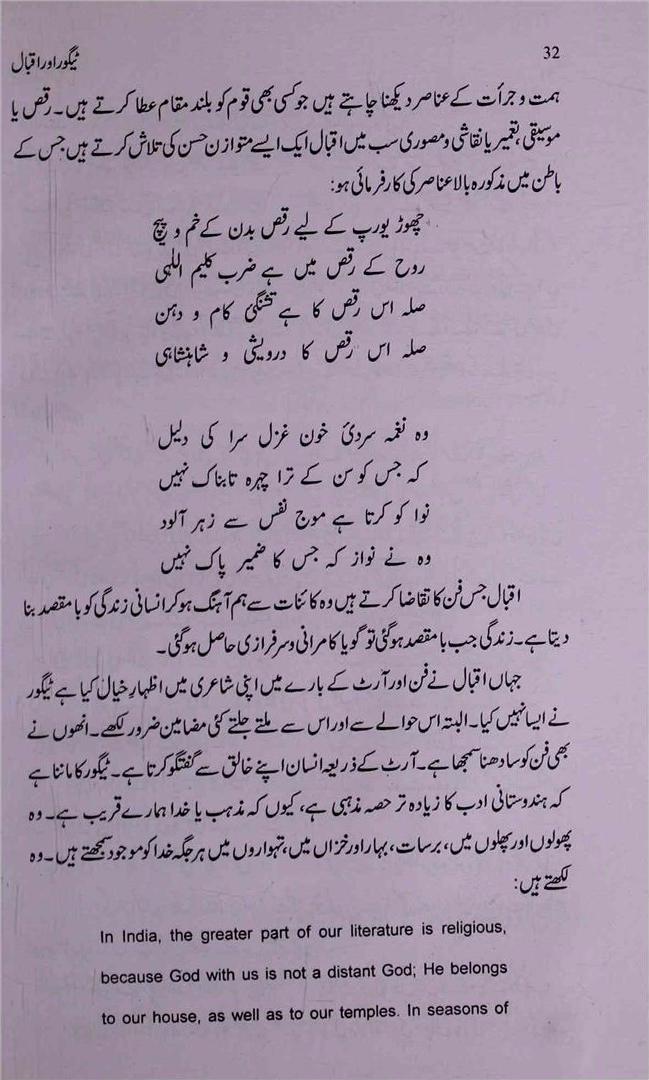 32
ٹیگور اور اقبال
ہمت و جرأت کے عناصر دیکھنا چاہتے ہیں جو کسی بھی قوم کو بلند مقام عطا کرتے ہیں۔ رقص یا
موسیقی، تعمیر یا نقاشی و مصوری سب میں اقبال ایک ایسے متوازن حسن کی تلاش کرتے ہیں جس کے
باطن میں مذکورہ بالا عناصر کی کارفرمائی ہو:
چھوڑ یورپ کے لیے رقص بدن کے خم و پیچ
روح کے رقص میں ہے ضرب کلیم اللہی
صلہ اس رقص کا ہے تشنگیٔ کام و دہن
صلہ اس رقص کا درویشی و شاہنشاہی
وہ نغمہ سردیٔ خون غزل سرا کی دلیل
کہ جس کو سن کے ترا چہرہ تابناک نہیں
نوا کو کرتا ہے موج نفس سے زہر آلود
وہ نے نواز کہ جس کا ضمیر پاک نہیں
اقبال جس فن کا تقاضا کرتے ہیں وہ کائنات سے ہم آہنگ ہو کر انسانی زندگی کو بامقصد بنا
دیتا ہے۔ زندگی جب بامقصد ہو گئی تو گویا کامرانی و سرفرازی حاصل ہو گئی۔
جہاں اقبال نے فن اور آرٹ کے بارے میں اپنی شاعری میں اظہارِ خیال کیا ہے ٹیگور
نے ایسا نہیں کیا۔ البتہ اس حوالے سے اور اس سے ملتے جلتے کئی مضامین ضرور لکھے۔ انھوں نے
بھی فن کو سادھنا سمجھا ہے۔ آرٹ کے ذریعہ انسان اپنے خالق سے گفتگو کرتا ہے۔ ٹیگور کا ماننا ہے
کہ ہندوستانی ادب کا زیادہ تر حصہ مذہبی ہے، کیوں کہ مذہب یا خدا ہمارے قریب ہے۔ وہ
پھولوں اور پھلوں میں، برسات، بہار اور خزاں میں، تہواروں میں ہر جگہ خدا کو موجود سمجھتے ہیں۔ وہ
لکھتے ہیں:
In India, the greater part of our literature is religious,
because God with us is not a distant God; He belongs
to our house, as well as to our temples. In seasons of